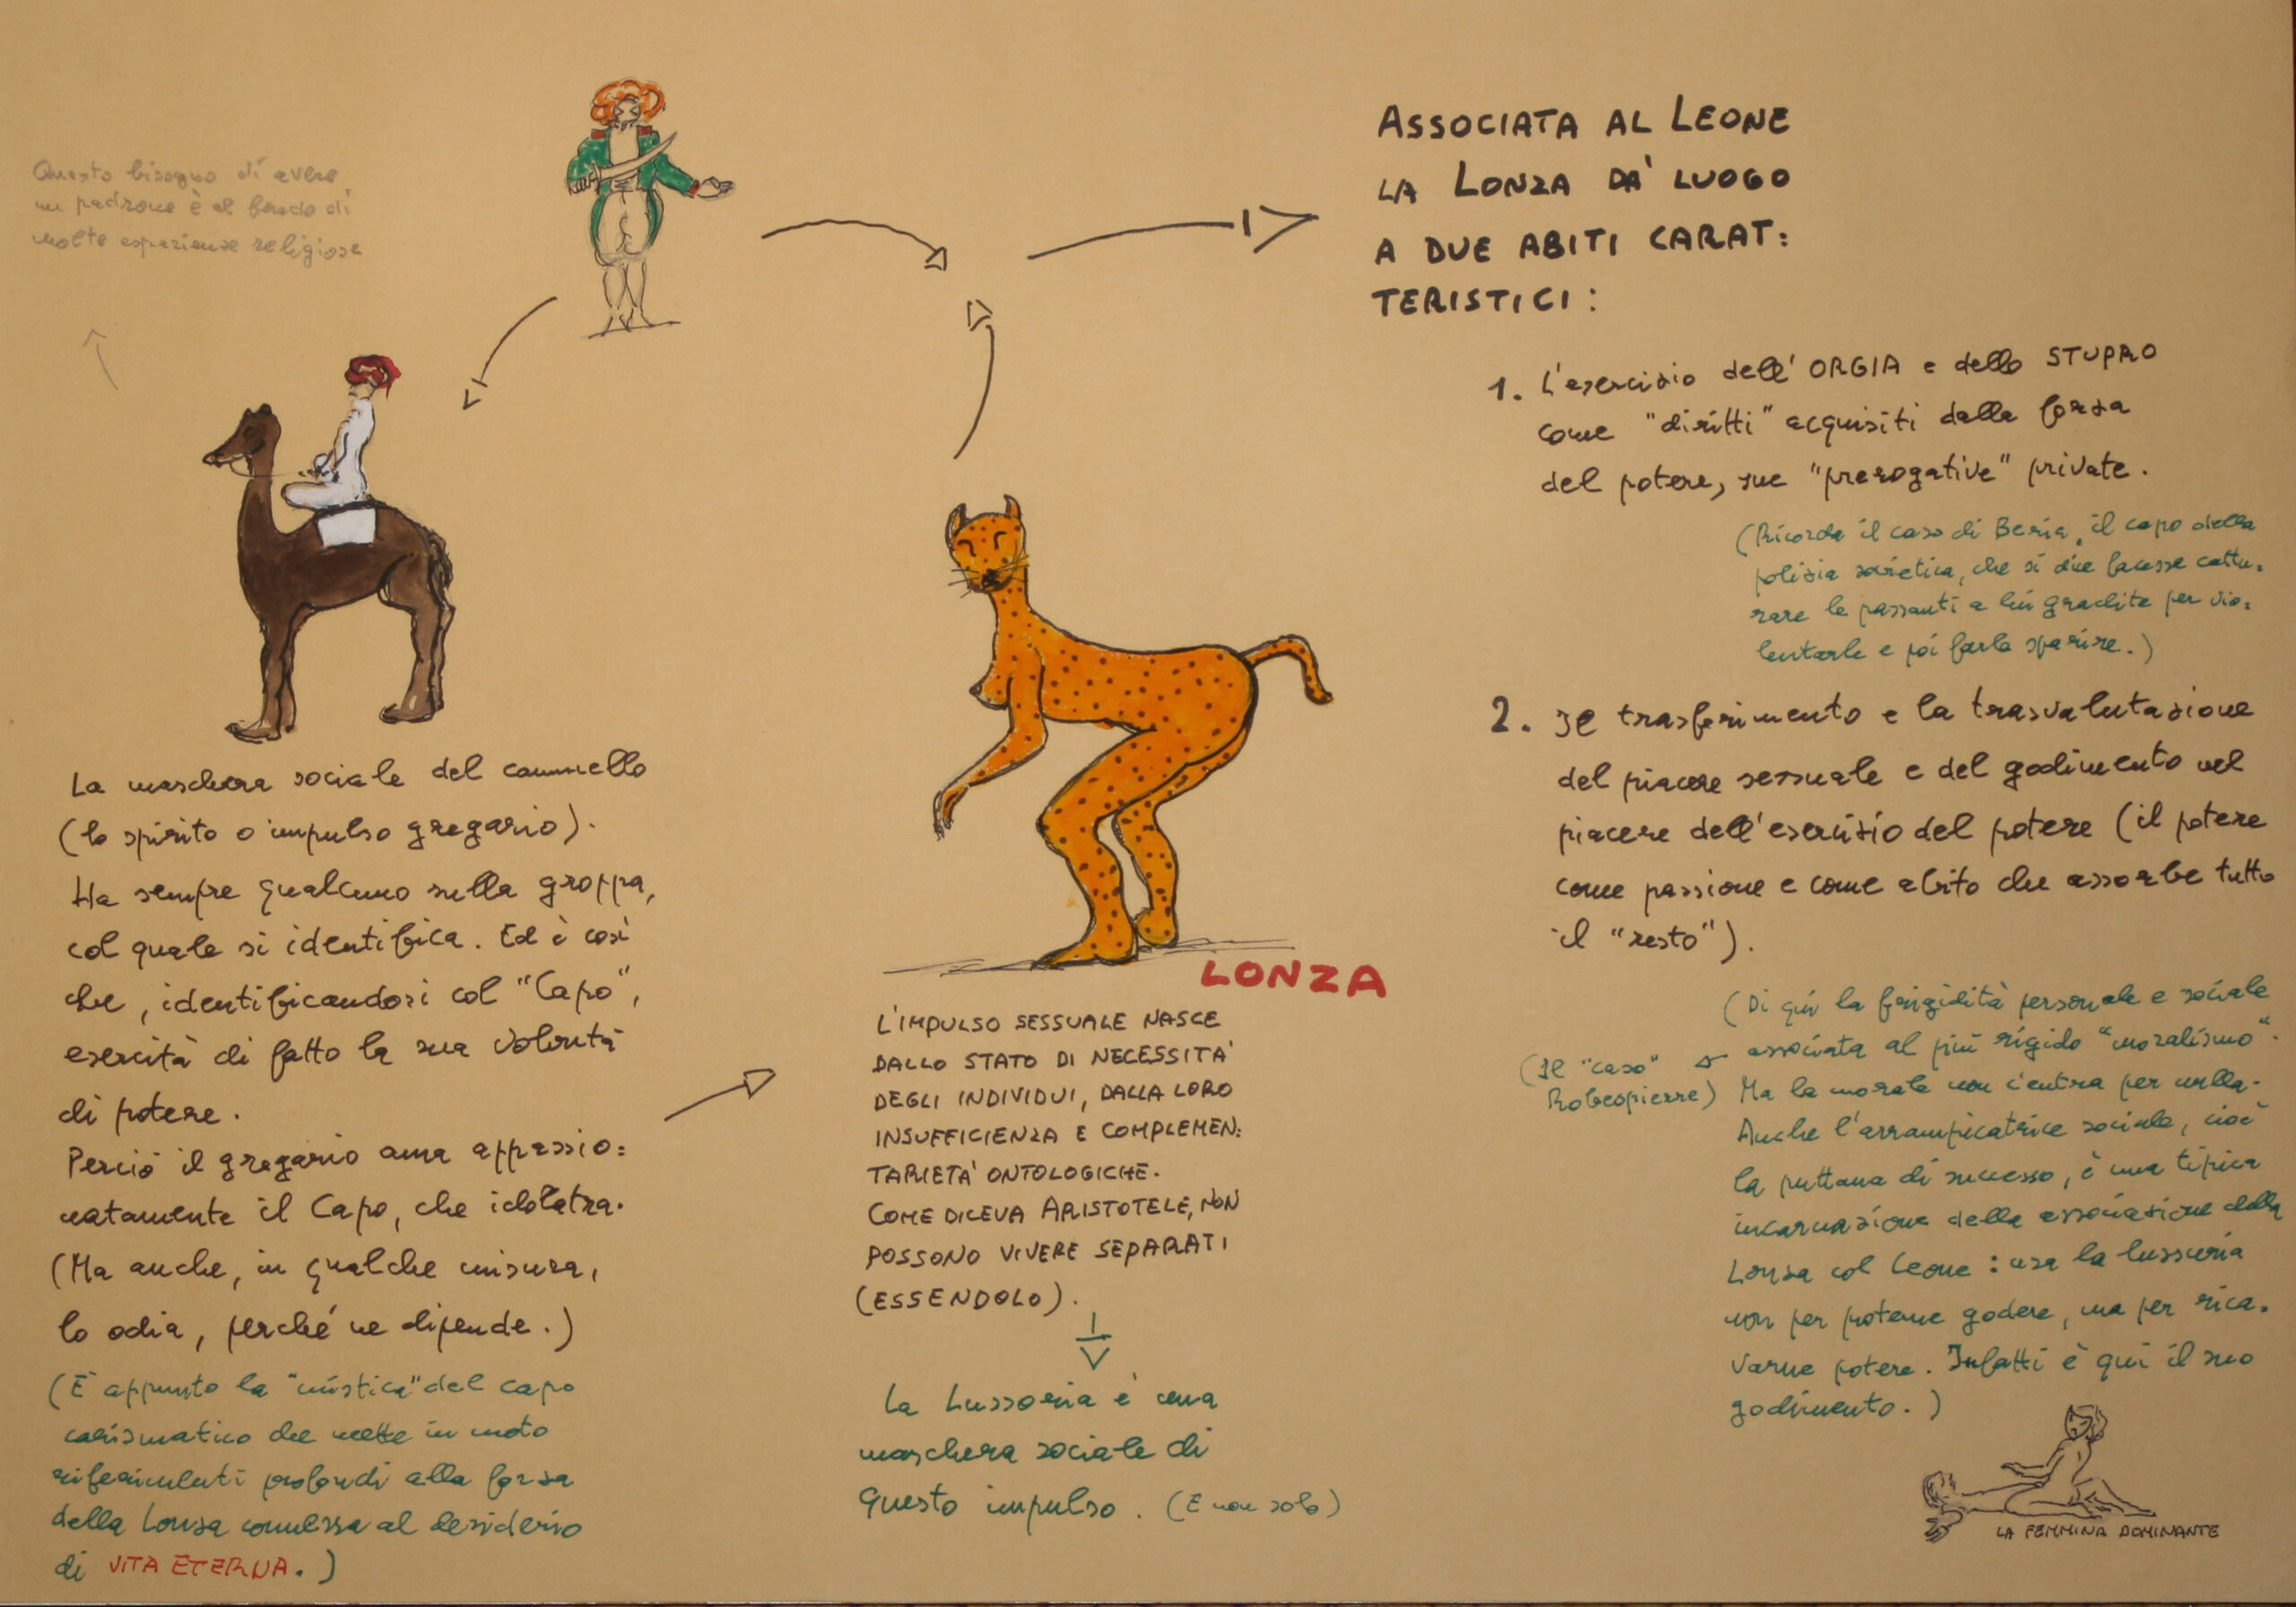 Questo bisogno di avere
un padrone è al fondo di
molte esperienze religiose
La maschera sociale del cammello
(lo spirito o impulso gregario).
Ha sempre qualcuno sulla groppa,
col quale si identifica. Ed è così
che, identificandosi col "Capo",
esercita di fatto la sua volontà
di potere.
Perciò il gregario ama appassio:
natamente il Capo, che idolatra.
(Ma anche, in qualche misura,
lo odia, perché ne dipende.)
(È appunto la "mistica" del capo
carismatico che mette in moto
riferimenti profondi alla forza
della Lonza connessa al desiderio
di VITA ETERNA.)
LONZA
L'IMPULSO SESSUALE NASCE
DALLO STATO DI NECESSITA'
DEGLI INDIVIDUI, DALLA LORO
INSUFFICIENZA E COMPLEMEN:
TARIETA' ONTOLOGICHE.
COME DICEVA ARISTOTELE, NON
POSSONO VIVERE SEPARATI
(ESSENDOLO).
La Lussuria è una
maschera sociale di
questo impulso. (E non solo)
ASSOCIATA AL LEONE
LA LONZA DA' LUOGO
A DUE ABITI CARAT:
TERISTICI:
1. L'esercizio dell'ORGIA e dello STUPRO
come "diritti" acquisiti dalla forza
del potere, sue "prerogative" private.
(Ricorda il caso di Beria, il capo della
polizia sovietica, che si dice facesse cattu:
rare le passanti a lui gradite per vio:
lentarle e poi farle sparire.)
2. Il trasferimento e la trasvalutazione
del piacere sessuale e del godimento nel
piacere dell'esercizio del potere (il potere
come passione e come abito che assorbe tutto
il "resto").
(Di qui la frigidità personale e sociale
associata al più rigido "moralismo".
(Il "caso"
Robespierre)
Ma la morale non c'entra per nulla.
Anche l'arrampicatrice sociale, cioè
la puttana di successo, è una tipica
incarnazione della associazione della
Lonza col Leone: usa la lussuria
non per poterne godere, ma per rica:
varne potere. Infatti è qui il suo
godimento.)
LA FEMMINA DOMINANTE